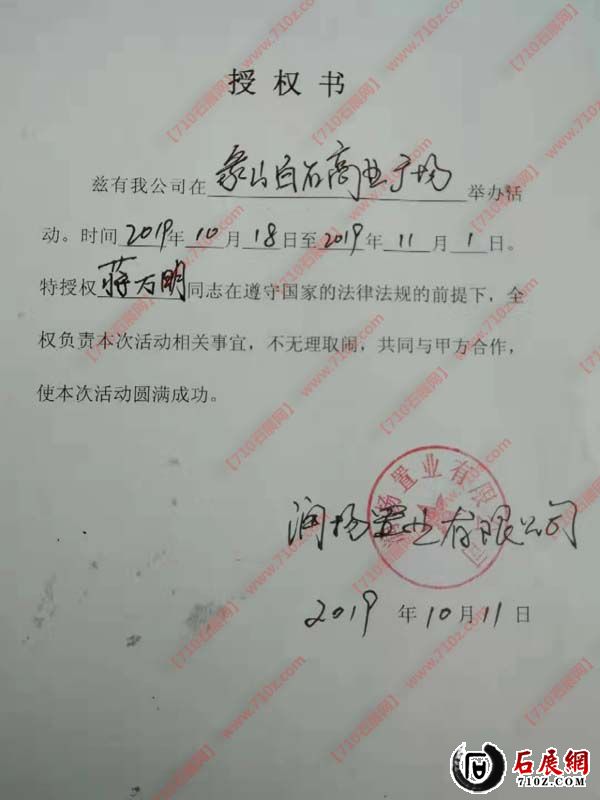 授权书
兹有我公司在象山白石商业广场举办活
动。时间2019年10月18日至2019年11月1日。
特授权蒋万明同志在遵守国家的法律法规的前提下，全
权负责本次活动相关事宜，不无理取闹，共同与甲方合作，
使本次活动圆满成功。
润扬置业有限公司
2019年10月11日
【710石展网】www.710z.com
石展網
710Z.COM